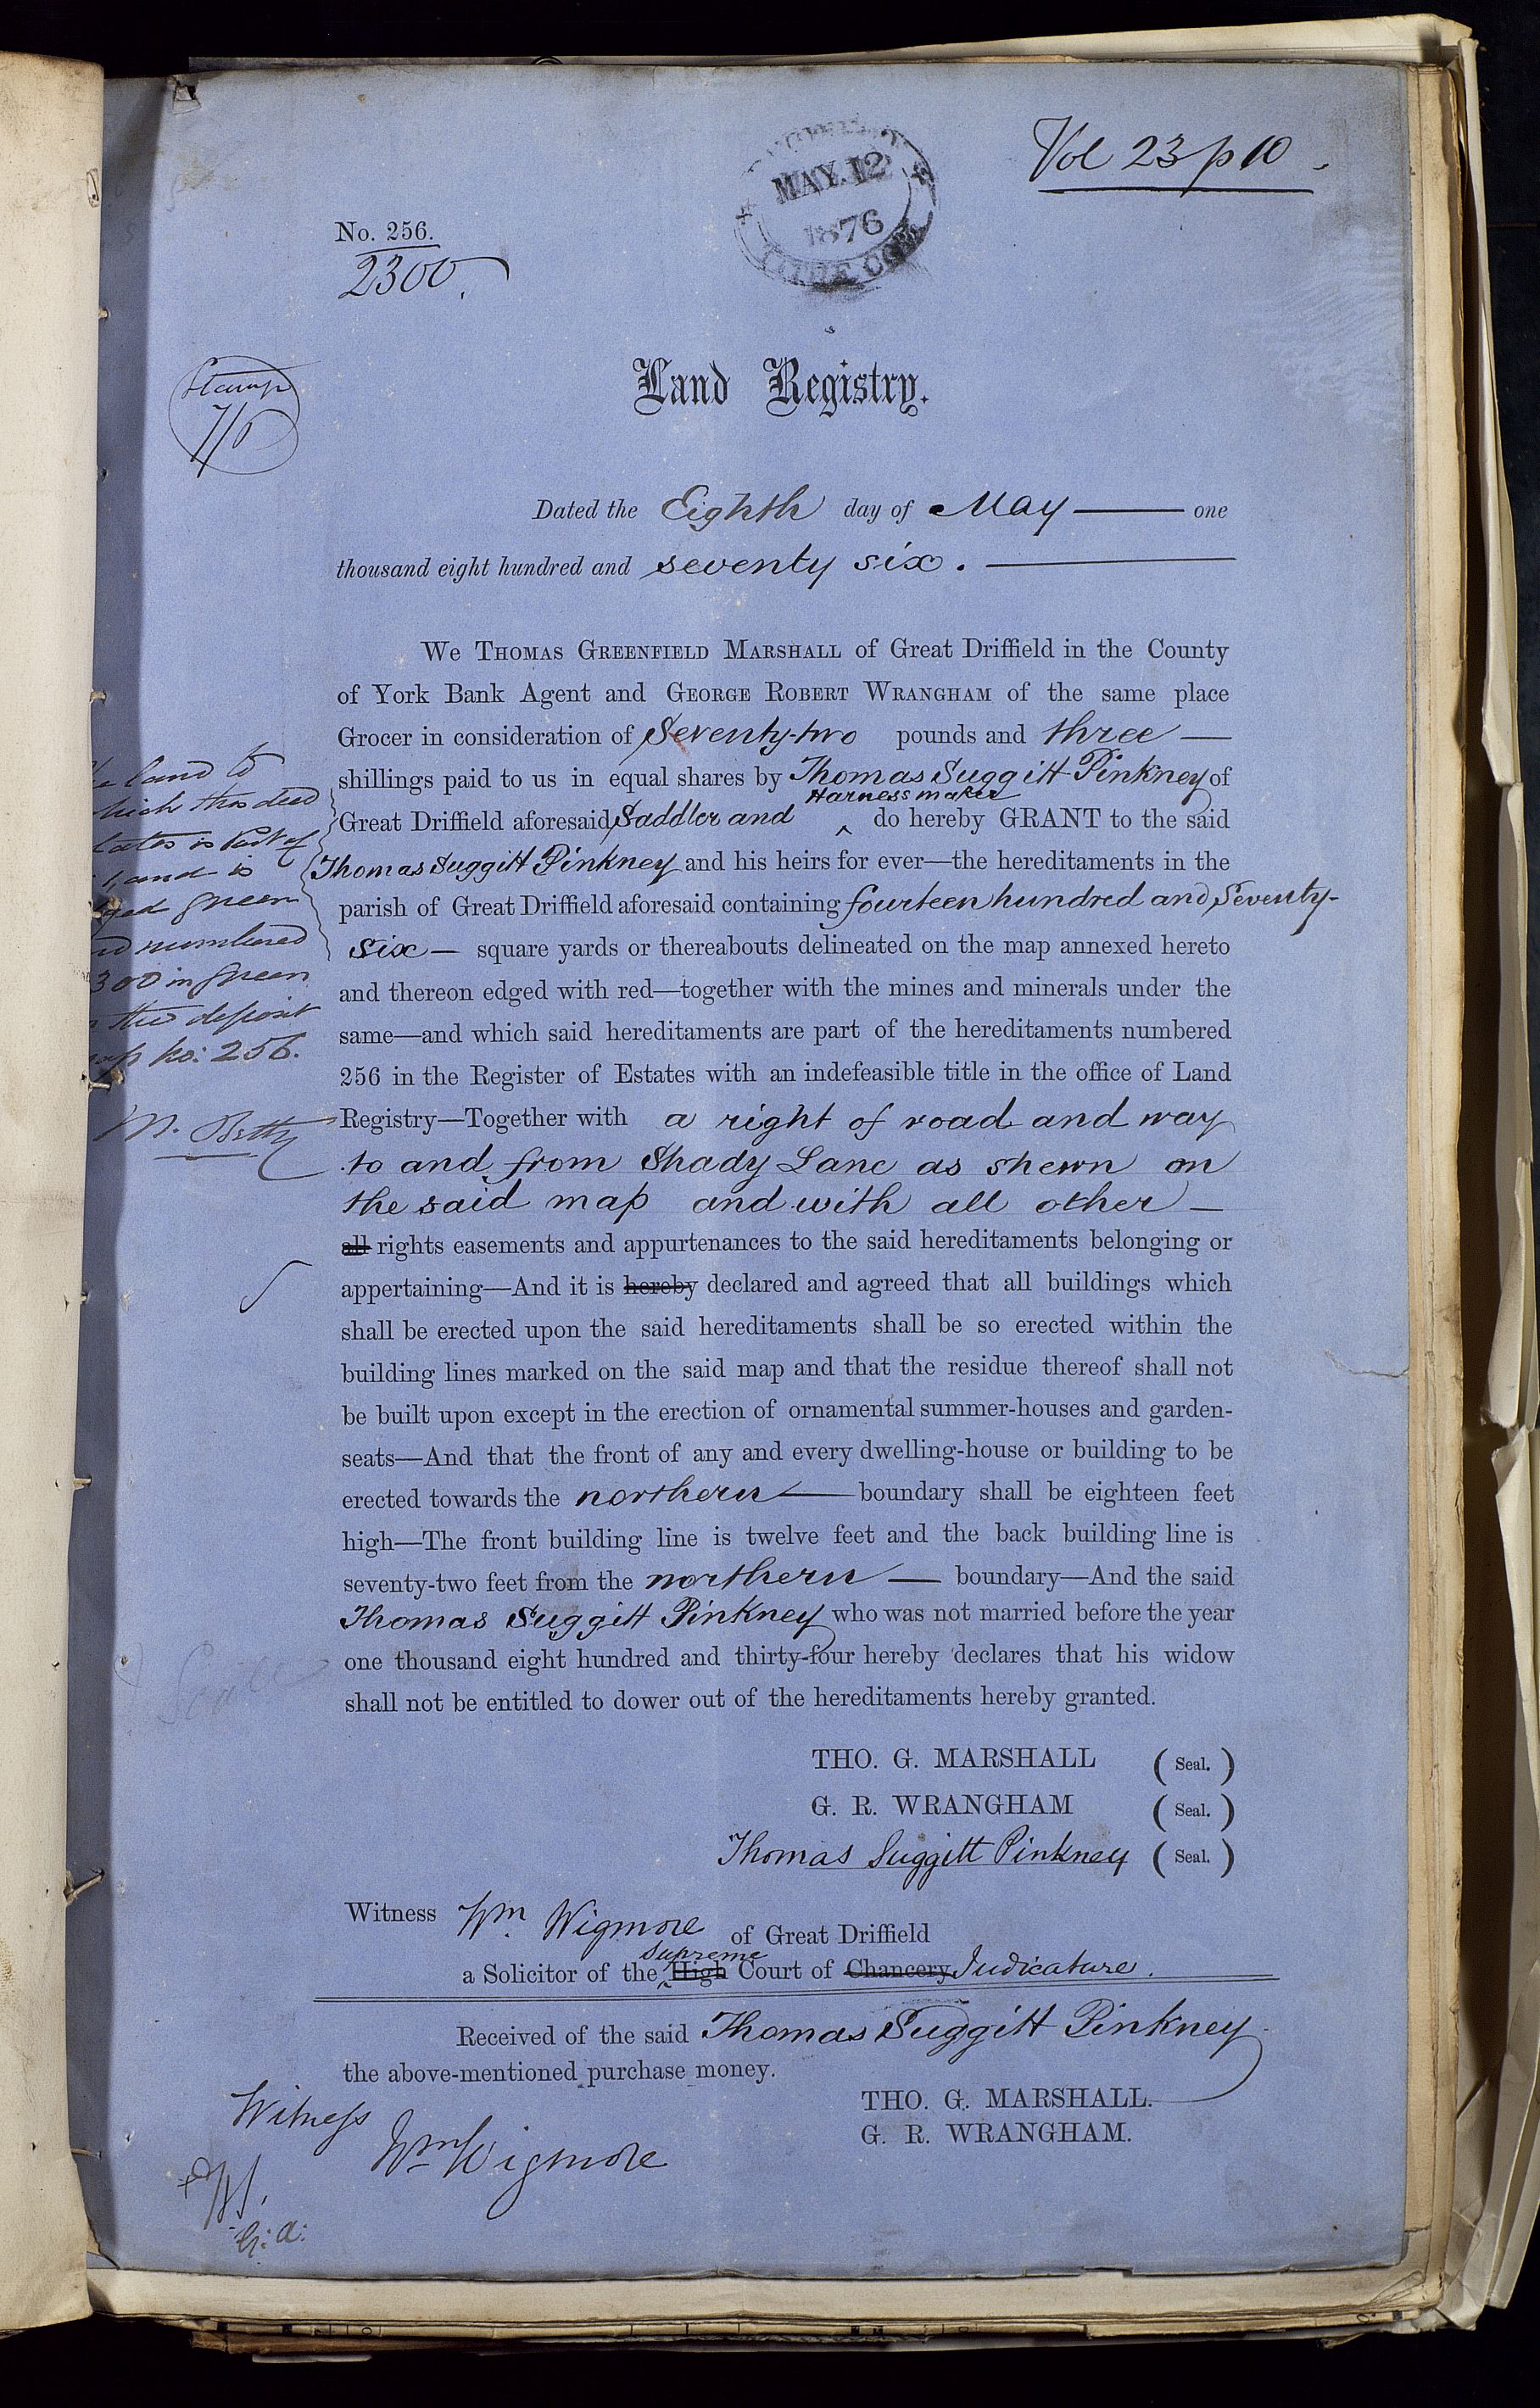 Vol 23 p 10
MAY. 12
1876
No. 256.
2300.
Stamp
7/6
Land Registry.
Dated the Eighth day of May — one
thousand eight hundred and seventy six. —
We Thomas Greenfield Marshall of Great Driffield in the County
of York Bank Agent and George Robert Wrangham of the same place
Grocer in consideration of Seventy-two pounds and three —
shillings paid to us in equal shares by Thomas Suggitt Pinkney of
Harness maker
Great Driffield aforesaid Saddler and ^ do hereby GRANT to the said
Thomas Suggitt Pinkney and his heirs for ever—the hereditaments in the
parish of Great Driffield aforesaid containing fourteen hundred and Seventy-
six — square yards or thereabouts delineated on the map annexed hereto
and thereon edged with red—together with the mines and minerals under the
same—and which said hereditaments are part of the hereditaments numbered
256 in the Register of Estates with an indefeasible title in the office of Land
Registry—Together with a right of road and way
to and from Shady Lane as shewn on
the said map and with all other —
all rights easements and appurtenances to the said hereditaments belonging or
appertaining—And it is hereby declared and agreed that all buildings which
shall be erected upon the said hereditaments shall be so erected within the
building lines marked on the said map and that the residue thereof shall not
be built upon except in the erection of ornamental summer-houses and garden-
seats—And that the front of any and every dwelling-house or building to be
erected towards the northern — boundary shall be eighteen feet
high—The front building line is twelve feet and the back building line is
seventy-two feet from the northern — boundary—And the said
Thomas Suggitt Pinkney who was not married before the year
one thousand eight hundred and thirty-four hereby declares that his widow
shall not be entitled to dower out of the hereditaments hereby granted.
land to
which this deed
is part of
and is
green
numbered
300 in green
the deposit
No: 256.
THO. G. MARSHALL ( Seal. )
G. R. WRANGHAM ( Seal. )
Thomas Suggitt Pinkney ( Seal. )
Witness Wm. Wigmore of Great Driffield
Supreme
a Solicitor of the ^ High Court of Chancery Judicature.
Received of the said Thomas Suggitt Pinkney
the above-mentioned purchase money.
THO. G. MARSHALL.
G. R. WRANGHAM.
Witness
Wm Wigmore